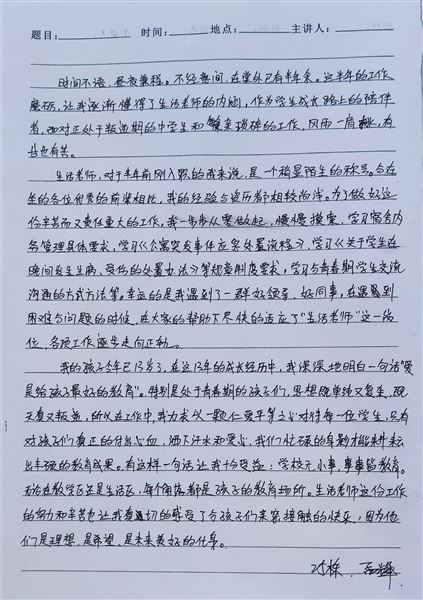 题目： 时间： 地点： 主讲人：
时间不语，昼夜兼程。不经意间，在堂外已有半年矣。这半年的工作
磨砺，让我逐渐懂得了生活老师的内涵，作为学生成长路上的陪伴
者，面对正处于叛逆期的中学生和繁杂琐碎的工作，风雨一肩挑，有
甘也有苦。
生活老师，对于半年前刚入职的我来说，是一个稍显陌生的称号。与在
坐的各位优秀的前辈相比，我的经验与资历都相较尚浅。为了做好这
份辛苦而又责任重大的工作，我一步步从零做起，慢慢摸索，学习宿舍内
务管理具体要求，学习《公寓突发事件应急处置流程》，学习《关于学生在
晚间发生生病、受伤的处置办法》等规章制度要求，学习与青春期学生交流
沟通的方式方法等。幸运的是我遇到了一群好领导、好同事，在遇到
困难与问题的时候，在大家的帮助下尽快的适应了“生活老师”这一岗
位，各项工作逐步走向正轨。
我的孩子今年已13岁了，在这13年的成长经历中，我深深地明白一句话“爱
是给孩子最好的教育”。特别是处于青春期的孩子们，思想既单纯又复杂，既
天真又叛逆，所以在工作中，我力求以一颗仁爱平等之心对待每一位学生，只有
对孩子们真正的付出心血，洒下汗水和爱心，我们忙碌的身影才能来耕耘
出丰硕的教育成果。有这样一句话让我十分受益：学校无小事，事事皆教育。
无论在教学区还是生活区，每个角落都是孩子的教育场所。生活老师这份工作
的努力和辛苦也让我真切的感受了与孩子们亲密接触的快乐，因为他
们是理想、是希望、是未来美好的化身。